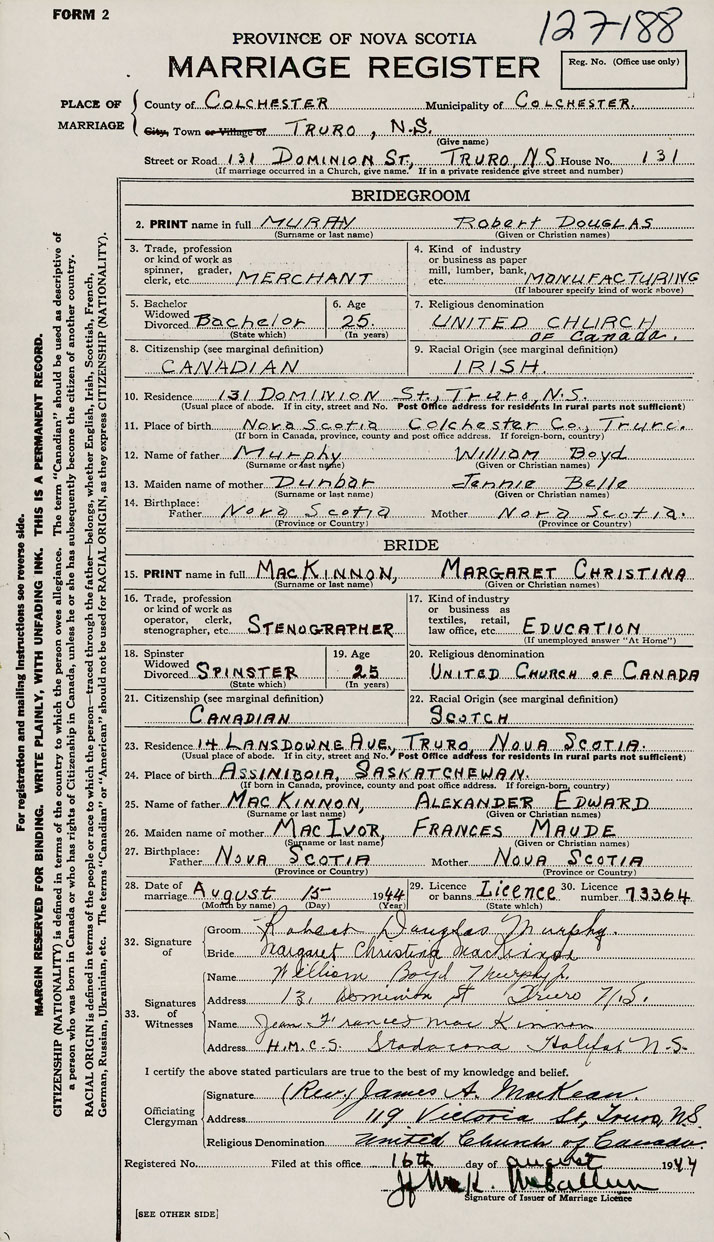 FORM 2
127188
PROVINCE OF NOVA SCOTIA
MARRIAGE REGISTER
Reg. No. (Office use only)
PLACE OF MARRIAGE
County of COLCHESTER Municipality of COLCHESTER.
City, Town or Village of TRURO, N.S.
(Give name)
Street or Road 131 DOMINION ST., TRURO, N.S. House No. 131
(If marriage occurred in a Church, give name. If in a private residence give street and number)
BRIDEGROOM
2. PRINT name in full MURPHY Robert DOUGLAS
(Surname or last name) (Given or Christian names)
3. Trade, profession or kind of work as spinner, grader, clerk, etc. MERCHANT
4. Kind of industry or business as paper mill, lumber, bank, etc. MANUFACTURING
(If labourer specify kind of work above)
5. Bachelor Widowed Divorced Bachelor
(State which)
6. Age 25.
(In years)
7. Religious denomination
UNITED CHURCH OF Canada.
8. Citizenship (see marginal definition)
CANADIAN
9. Racial Origin (see marginal definition)
IRISH.
10. Residence 131 DOMINION St., Truro, N.S.
(Usual place of abode. If in city, street and No. Post Office address for residents in rural parts not sufficient)
11. Place of birth Nova Scotia Colchester Co., Truro.
(If born in Canada, province, county and post office address. If foreign-born, country)
12. Name of father Murphy William Boyd
(Surname or last name) (Given or Christian names)
13. Maiden name of mother Dunbar Jennie Belle
(Surname or last name) (Given or Christian names)
14. Birthplace: Father Nova Scotia Mother Nova Scotia.
(Province or Country) (Province or Country)
BRIDE
15. PRINT name in full MACKINNON, MARGARET CHRISTINA
(Surname or last name) (Given or Christian names)
16. Trade, profession or kind of work as operator, clerk, stenographer, etc. STENOGRAPHER
17. Kind of industry or business as textiles, retail, law office, etc. EDUCATION
(If unemployed answer "At Home")
18. Spinster Widowed Divorced SPINSTER
(State which)
19. Age 25
(In years)
20. Religious denomination
UNITED CHURCH OF CANADA
21. Citizenship (see marginal definition)
CANADIAN
22. Racial Origin (see marginal definition)
SCOTCH
23. Residence 14 LANSDOWNE AVE., TRURO, NOVA SCOTIA.
(Usual place of abode. If in city, street and No. Post Office address for residents in rural parts not sufficient)
24. Place of birth ASSINIBOIA, SASKATCHEWAN.
(If born in Canada, province, county and post office address. If foreign-born, country)
25. Name of father MACKINNON, ALEXANDER EDWARD
(Surname or last name) (Given or Christian names)
26. Maiden name of mother MACIVOR, FRANCES MAUDE
(Surname or last name) (Given or Christian names)
27. Birthplace: Father NOVA SCOTIA Mother NOVA SCOTIA
(Province or Country) (Province or Country)
28. Date of marriage August 15 1944
(Month by name) (Day) (Year)
29. Licence or banns Licence
(State which)
30. Licence number 73364
32. Signature of
Groom Robert Douglas Murphy.
Bride Margaret Christina MacKinnon
33. Signatures of Witnesses
Name William Boyd Murphy
Address 131 Dominion St Truro N.S.
Name Jean Frances MacKinnon
Address H.M.C.S. Stadacona Halifax N.S.
I certify the above stated particulars are true to the best of my knowledge and belief.
Officiating Clergyman
Signature (Rev.) James A. MacKean.
Address 119 Victoria St, Truro, N.S.
Religious Denomination United Church of Canada.
Registered No. Filed at this office 16th day of august 1944
Signature of Issuer of Marriage Licence
[SEE OTHER SIDE]
For registration and mailing instructions see reverse side.
MARGIN RESERVED FOR BINDING. WRITE PLAINLY, WITH UNFADING INK. THIS IS A PERMANENT RECORD.
CITIZENSHIP (NATIONALITY) is defined in terms of the country to which the person owes allegiance. The term "Canadian" should be used as descriptive of
a person who was born in Canada or who has rights of Citizenship in Canada, unless he or she has subsequently become the citizen of another country.
RACIAL ORIGIN is defined in terms of the people or race to which the person—traced through the father—belongs, whether English, Irish, Scottish, French,
German, Russian, Ukrainian, etc. The terms "Canadian" or "American" should not be used for RACIAL ORIGIN, as they express CITIZENSHIP (NATIONALITY).